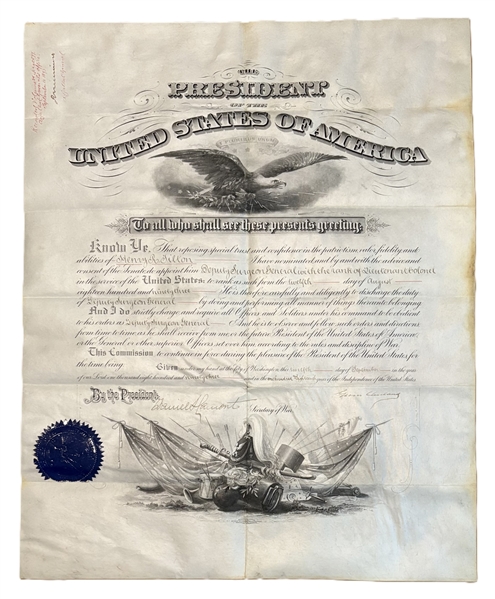 THE
PRESIDENT
OF THE
UNITED STATES OF AMERICA
To all who shall see these presents greeting:
Know Ye, That reposing special trust and confidence in the patriotism, valor, fidelity and
abilities of Henry R. Tilton I have nominated and by and with the advice and
consent of the Senate do appoint him Deputy Surgeon General with the rank of Lieutenant Colonel
in the service of the United States: to rank as such from the twelfth day of August
eighteen hundred and ninety three He is therefore carefully and diligently to discharge the duty
of Deputy Surgeon General by doing and performing all manner of things thereunto belonging
And I do strictly charge and require all Officers and Soldiers under his command to be obedient
to his orders as Deputy Surgeon General And he is to observe and follow such orders and directions
from time to time as he shall receive from me or the future President of the United States of America,
or the General or other superior Officers set over him according to the rules and discipline of War.
This Commission to continue in force during the pleasure of the President of the United States for
the time being.
Given under my hand at the City of Washington this day of in the year
of our Lord one thousand eight hundred and ninety three and in the one hundred and year of the Independence of the United States.
By the President:
Daniel S. Lamont Secretary of War.